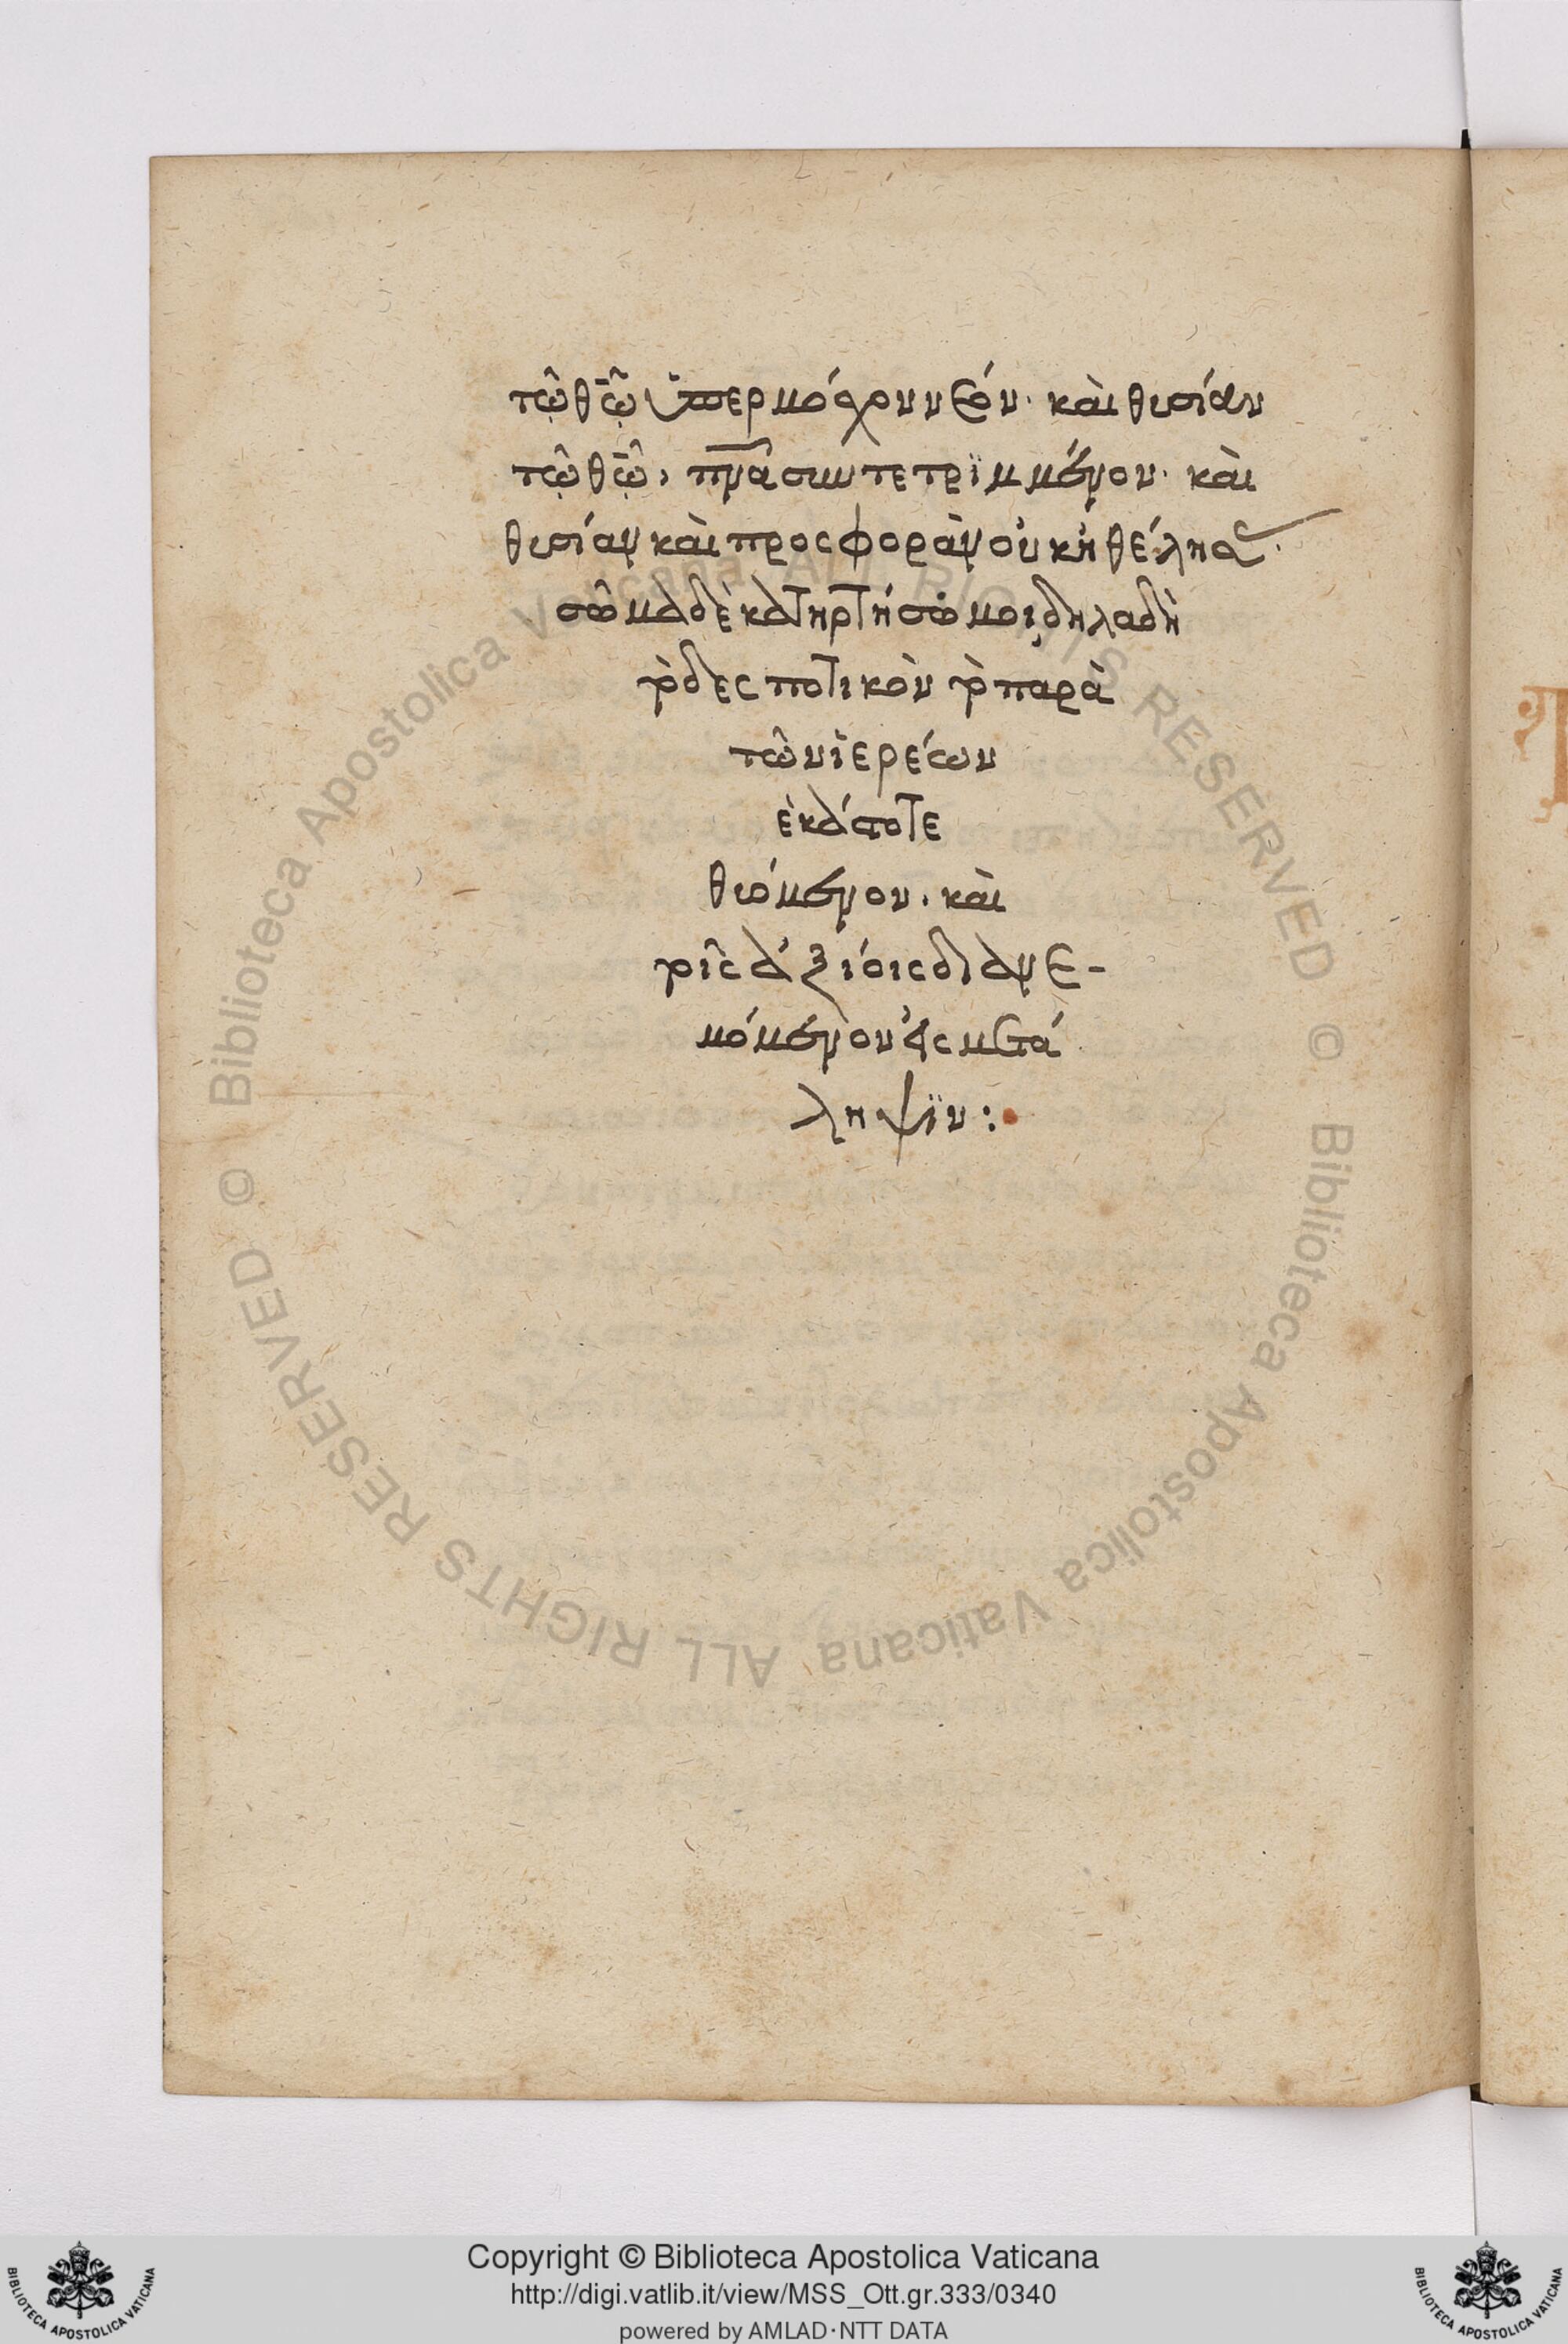 τῶ θῶ ὑπερμόσχουν νέον· καὶ θυσίαν
τῶ θῶ, πνα συντετριμμένον· καὶ
θυσίαν καὶ προσφορὰν οὐκ ἠθέλησας·
σῶμα δὲ κατηρτήσω μοι, δηλαδὴ
τὸ δεσποτικὸν τὸ παρὰ
τῶν ἱερέων
ἑκάστοτε
θυόμενον· καὶ
τοῖς ἀξίοις διανε-
μόμενον εἰς μετά
ληψϊν:
Copyright © Biblioteca Apostolica Vaticana
http://digi.vatlib.it/view/MSS_Ott.gr.333/0340
powered by AMLAD·NTT DATA
BIBLIOTECA APOSTOLICA VATICANA
BIBLIOTECA APOSTOLICA VATICANA
© Biblioteca Apostolica Vaticana ALL RIGHTS RESERVED
© Biblioteca Apostolica Vaticana ALL RIGHTS RESERVED